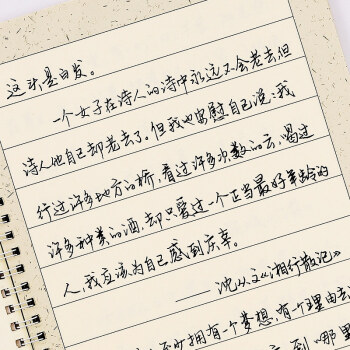 这就是白发。
一个女子在诗人的诗中永远不会老去,但
诗人他自己却老去了。但我也安慰自己说:我
行过许多地方的桥,看过许多次数的云,喝过
许多种类的酒,却只爱过一个正当最好年龄的
人,我应该为自己感到庆幸。
——沈从文《湘行散记》
至少拥有一个梦想,有一个理由去
到“哪里